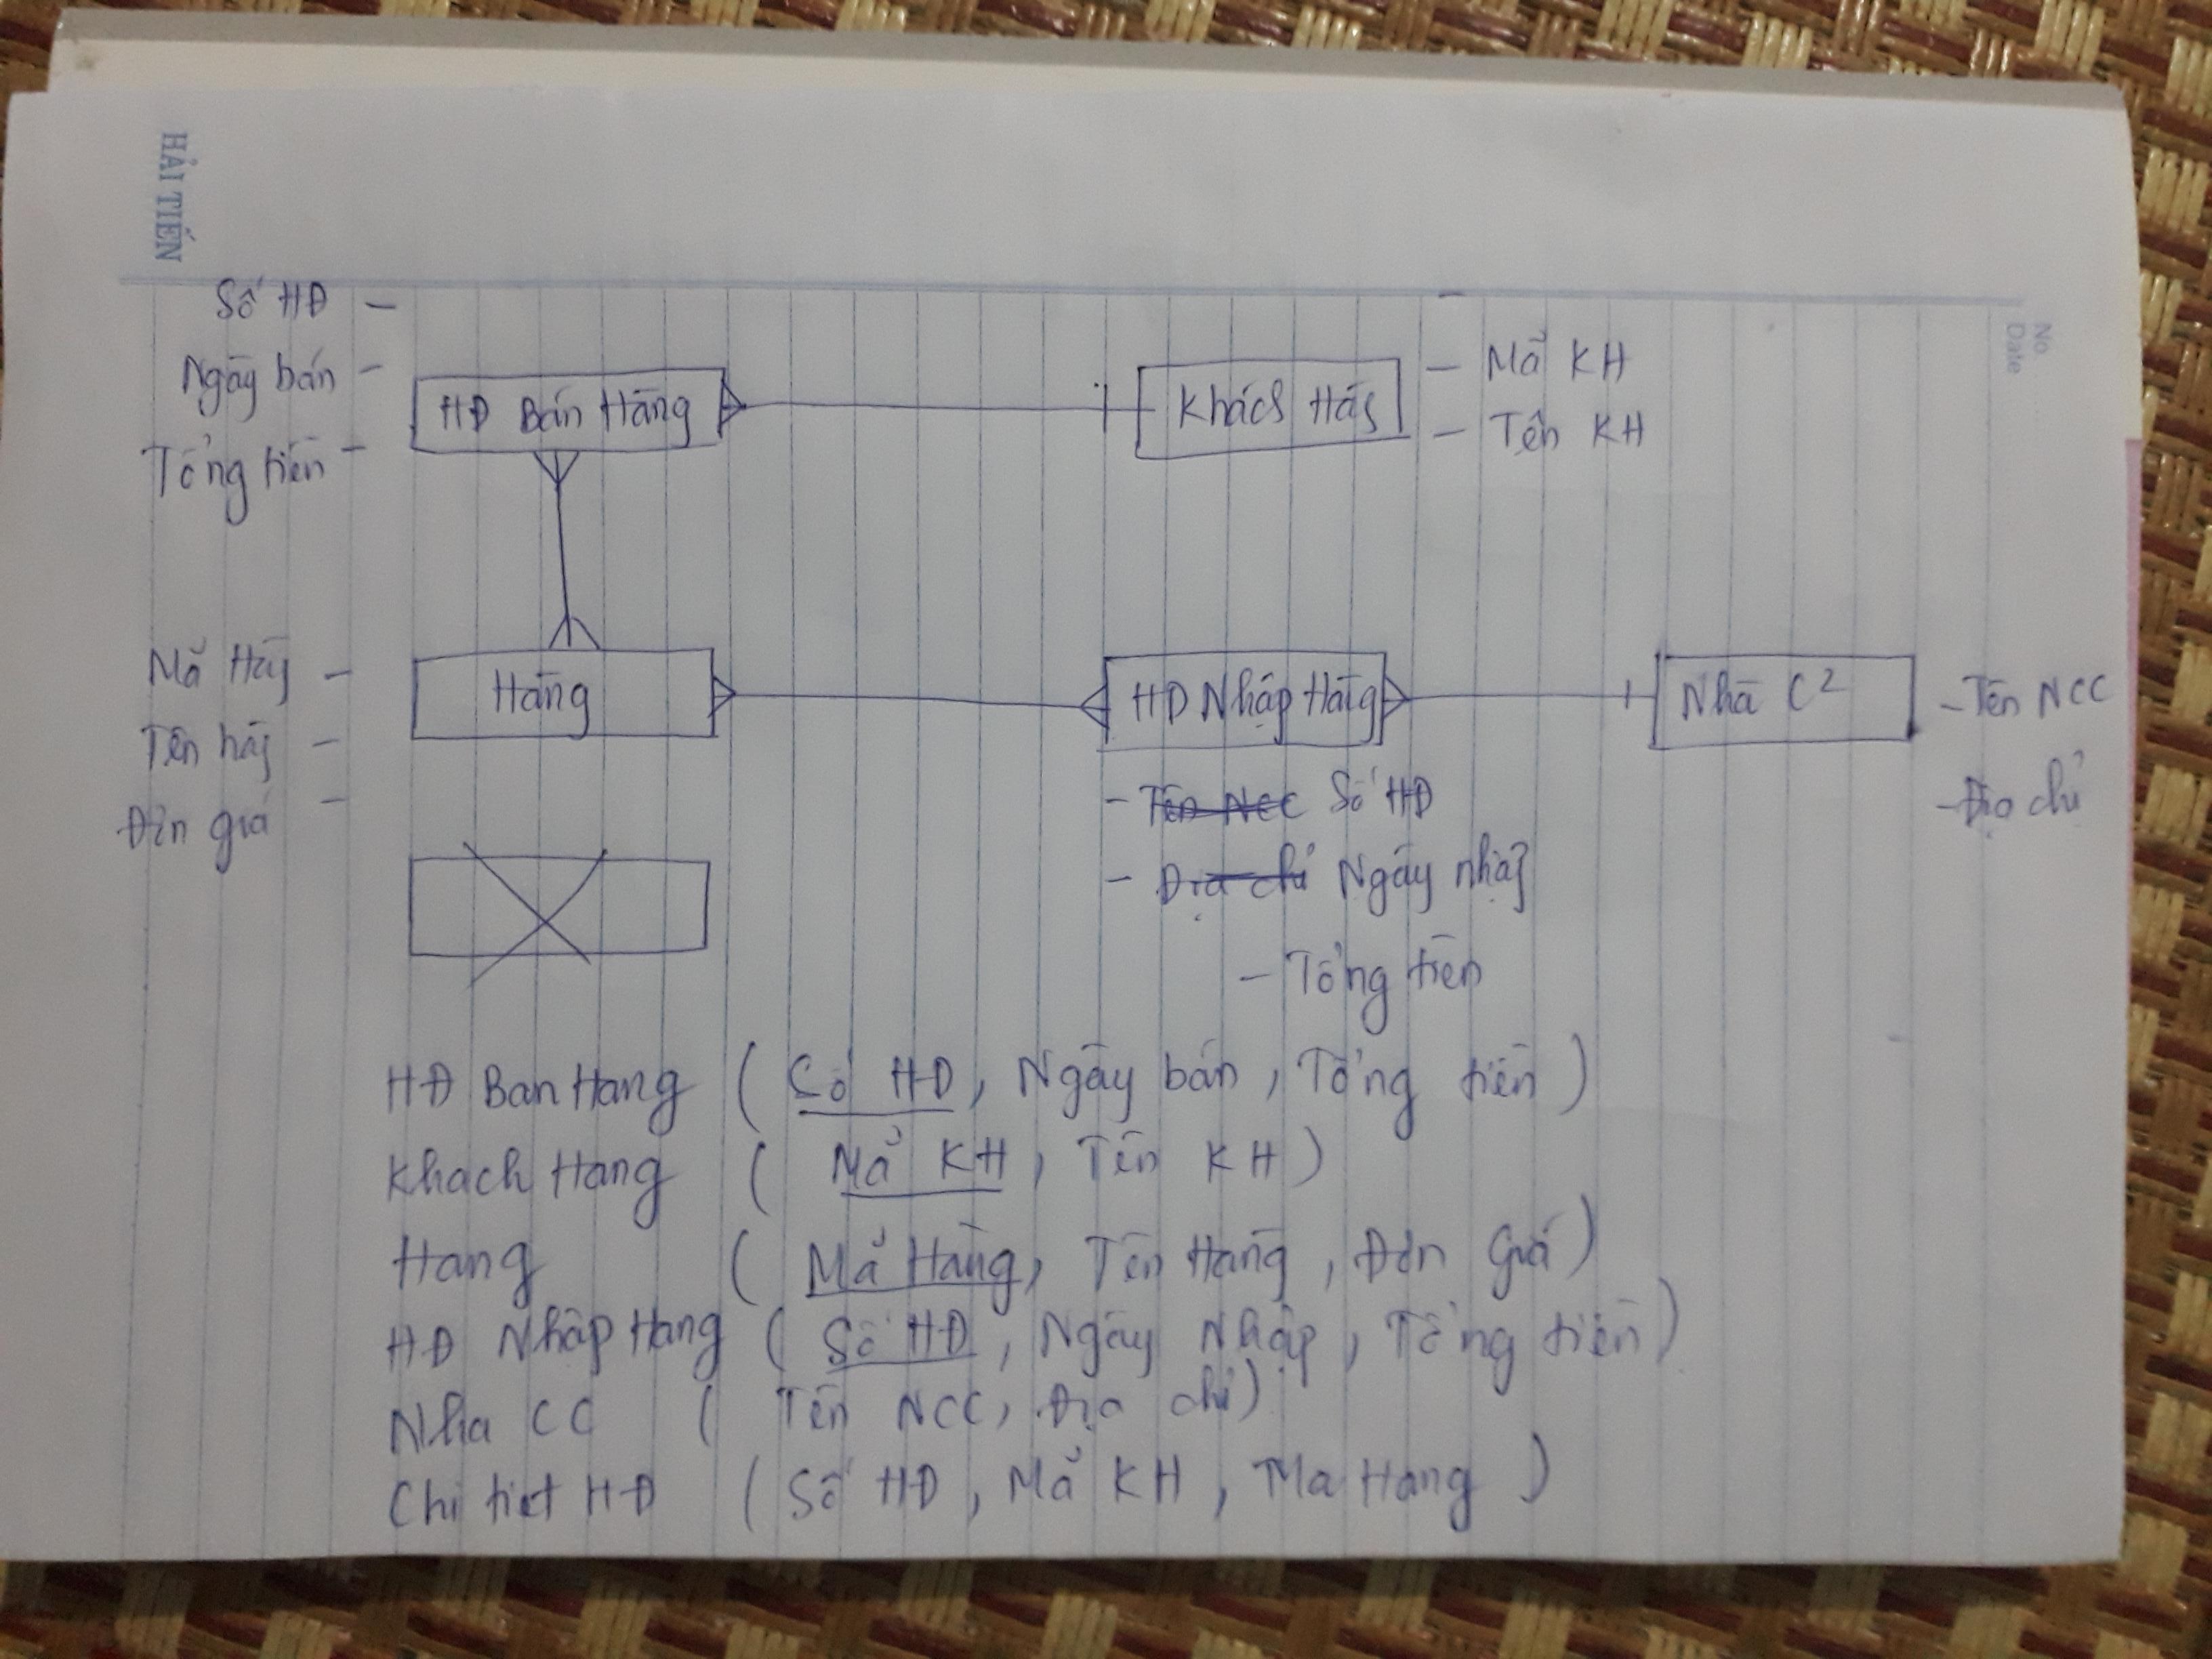 HẢI TIẾN
No.
Date
Số HĐ -
Ngày bán -
Tổng tiền -
HĐ Bán Hàng
Khách Hàg
- Mã KH
- Tên KH
Mã Hàg -
Tên hàg -
Đơn giá -
Hàng
HĐ Nhập Hàng
Nhà C²
- Tên NCC
- Địa chỉ
- Tên NCC Số HĐ
- Địa chỉ Ngày nhập
- Tổng tiền
HĐ Ban Hang ( Số HĐ, Ngày bán, Tổng tiền )
Khach Hang ( Mã KH, Tên KH )
Hang ( Mã Hàng, Tên Hàng, Đơn Giá )
HĐ Nhập Hang ( Số HĐ, Ngày Nhập, Tổng tiền )
Nha CC ( Tên NCC, Địa chỉ )
Chi tiet HĐ ( Số HĐ, Mã KH, Ma Hang )